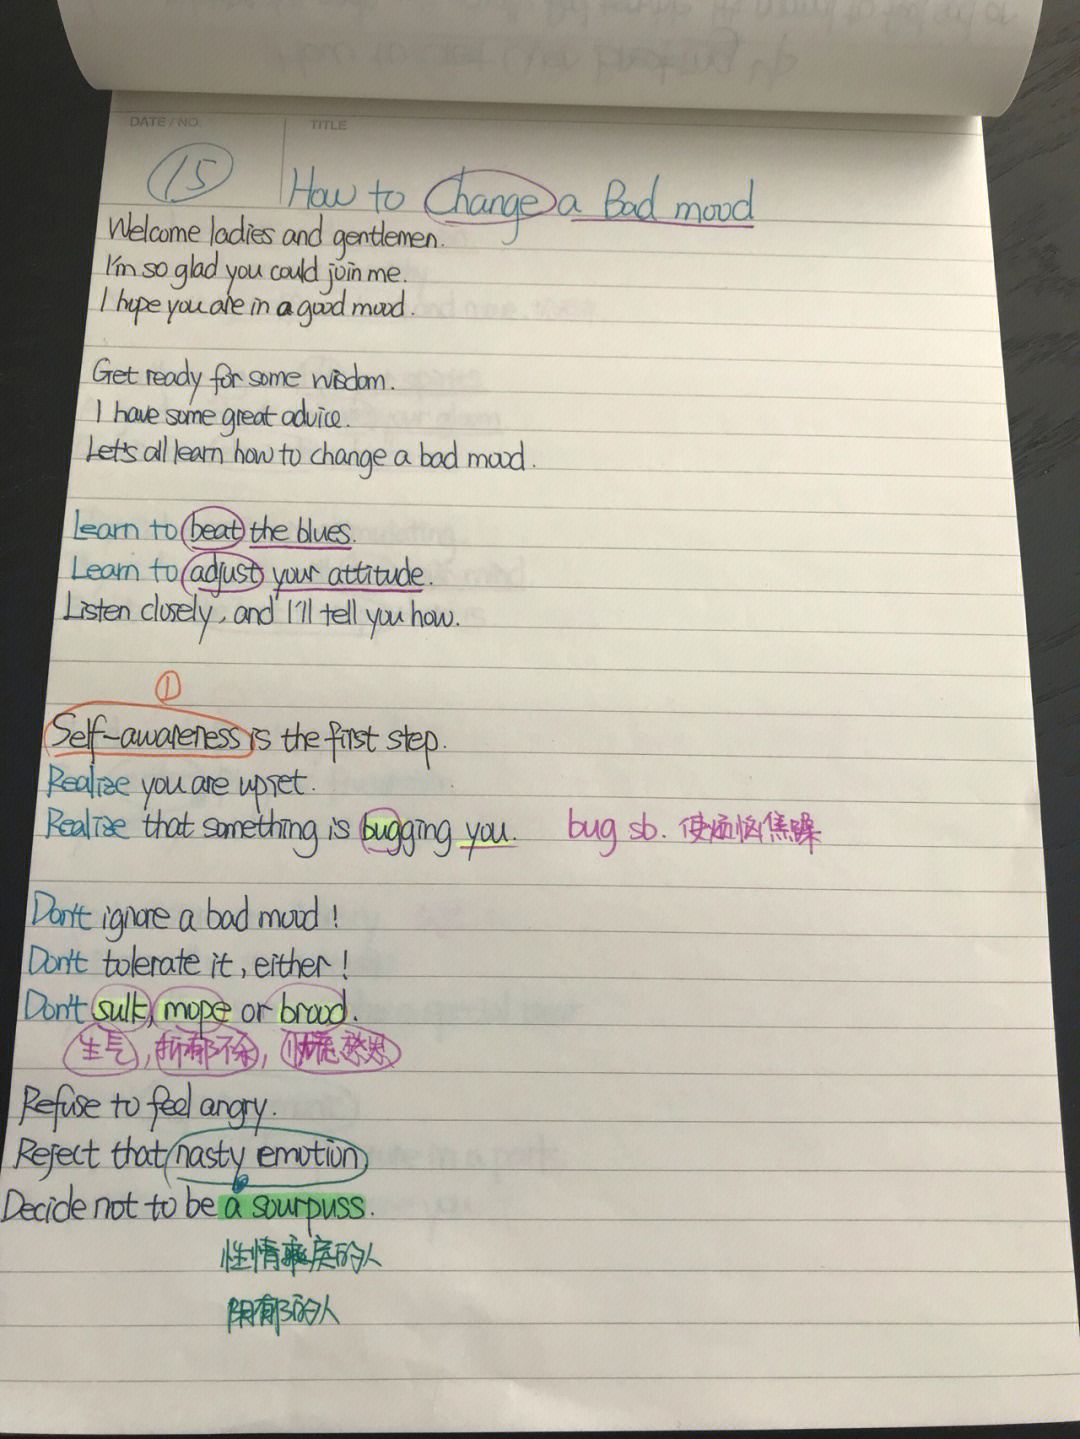 DATE / NO.
TITLE
15
How to Change a Bad mood
Welcome ladies and gentlemen.
I'm so glad you could join me.
I hope you are in a good mood.
Get ready for some wisdom.
I have some great advice.
Let's all learn how to change a bad mood.
Learn to beat the blues.
Learn to adjust your attitude.
Listen closely, and I'll tell you how.
①
Self-awareness is the first step.
Realize you are upset.
Realize that something is bugging you. bug sb. 使烦恼焦躁
Don't ignore a bad mood!
Don't tolerate it, either!
Don't sulk, mope or brood.
生气, 抑郁不乐,
Refuse to feel angry.
Reject that nasty emotion
Decide not to be a sourpuss.
性情乖戾的人
阴郁的人